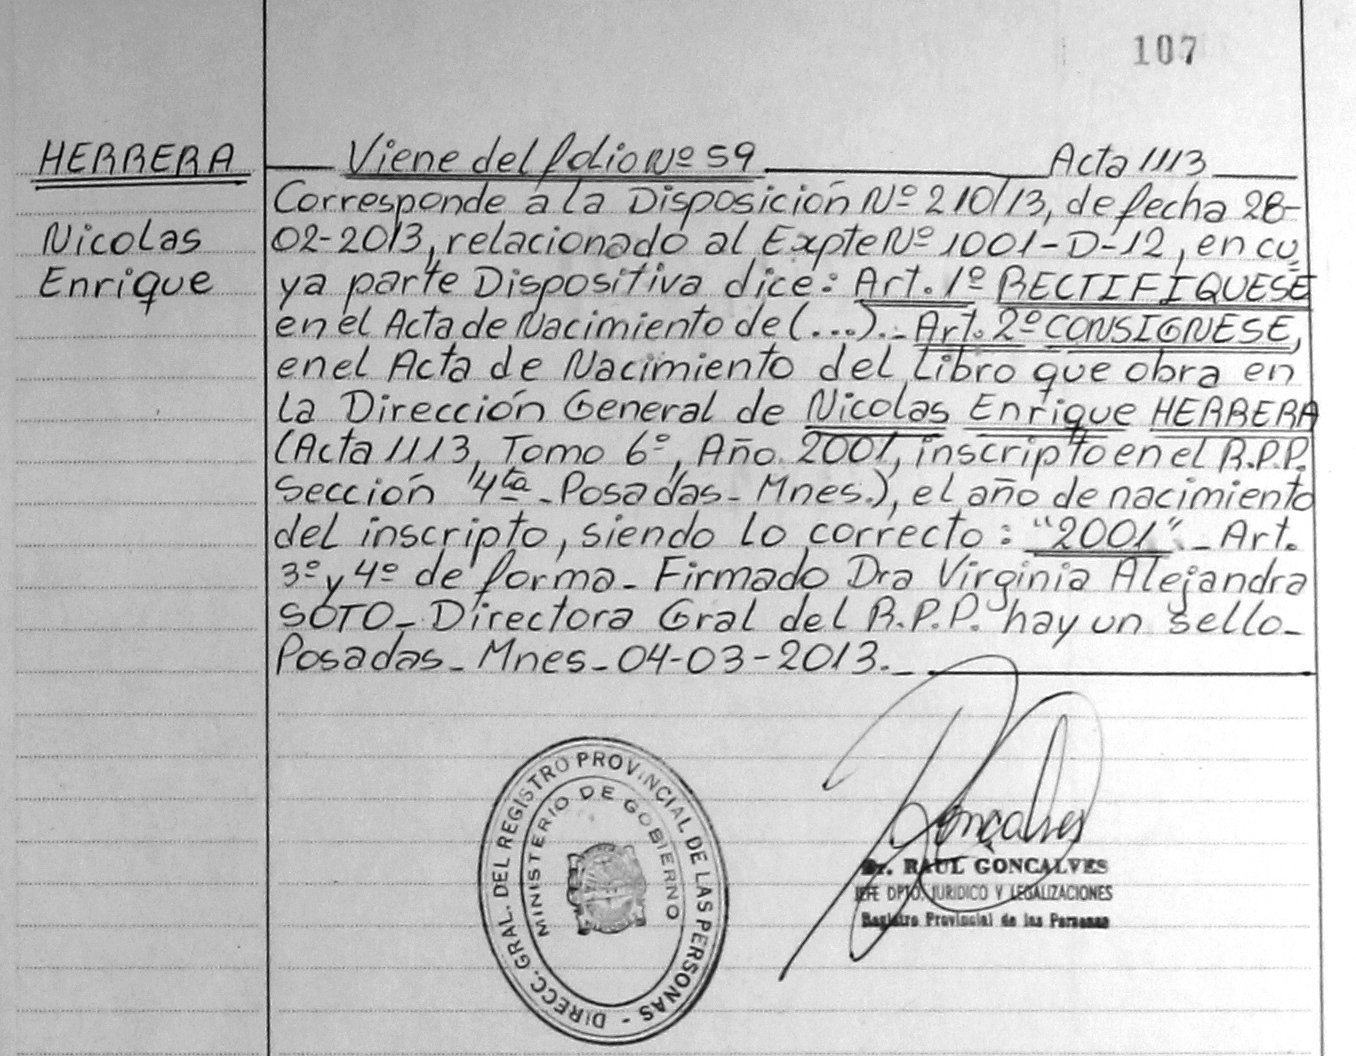 107
HERRERA
Nicolas
Enrique
Viene del folio Nº 59 Acta 1113
Corresponde a la Disposición Nº 210/13, de fecha 28-
02-2013, relacionado al Expte Nº 1001-D-12, en cu
ya parte Dispositiva dice: Art. 1º RECTIFIQUESE
en el Acta de Nacimiento de (...).- Art. 2º CONSIGNESE,
en el Acta de Nacimiento del Libro que obra en
la Dirección General de Nicolas Enrique HERRERA
(Acta 1113, Tomo 6º, Año 2001, inscripto en el R.P.P.
Sección 4ta - Posadas - Mnes.), el año de nacimiento
del inscripto, siendo lo correcto: "2001" - Art.
3º y 4º de forma - Firmado Dra Virginia Alejandra
SOTO - Directora Gral del R.P.P. hay un sello -
Posadas - Mnes - 04-03-2013. -
DIRECC. GRAL. DEL REGISTRO PROVINCIAL DE LAS PERSONAS -
MINISTERIO DE GOBIERNO
Goncalves
Dr. RAUL GONCALVES
JEFE DPTO. JURIDICO Y LEGALIZACIONES
Registro Provincial de las Personas